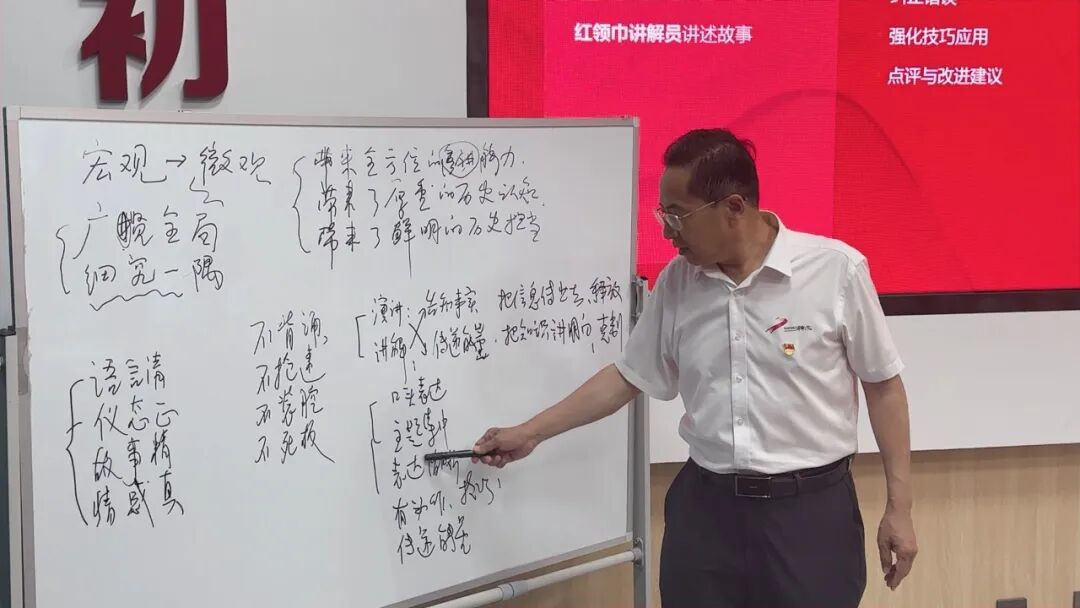 初
红领巾讲解员讲述故事
强化技巧应用
点评与改进建议
宏观→微观
广览全局
细究一隅
带来全方位的 能力.
带来了厚重的历史认知.
带来了鲜明的历史担当
演讲: 告知事实 把信息传出去、释放
讲解: 传递能量. 把知识讲明白,
语言清
仪态正
故事精
情感真
不背诵,
不抢速
不装腔
不死板
口头表达
主题集中
表达清晰
有动作、技巧!
传递能量